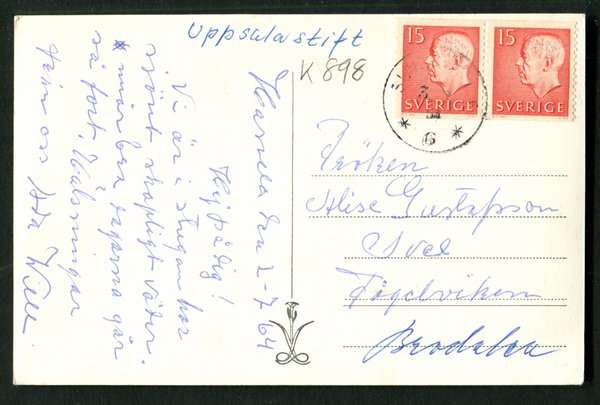 Uppsala stift
K 898
15
SVERIGE
15
SVERIGE
3
6
Hamra den 2-7-64
Hej på Dig!
Vi är i stugan har
skapligt väder.
mår bra dagarna går
så fort. Hälsningar
från oss
Fröken
Alise Gustafsson
Svel
Fögelviken
Brodalen